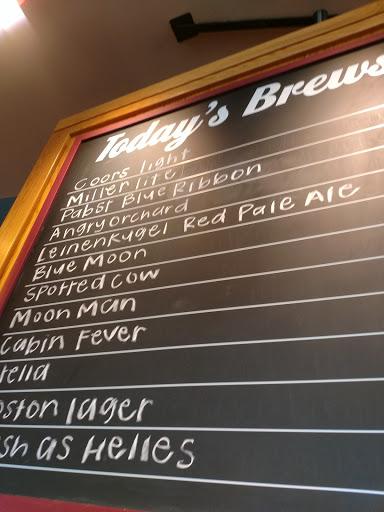 Today's Brews
Coors light
Miller lite
Pabst Blue Ribbon
Angry orchard
Leinenkugel Red Pale Ale
Blue Moon
Spotted Cow
Moon Man
Cabin Fever
tella
oston lager
sh as Helles